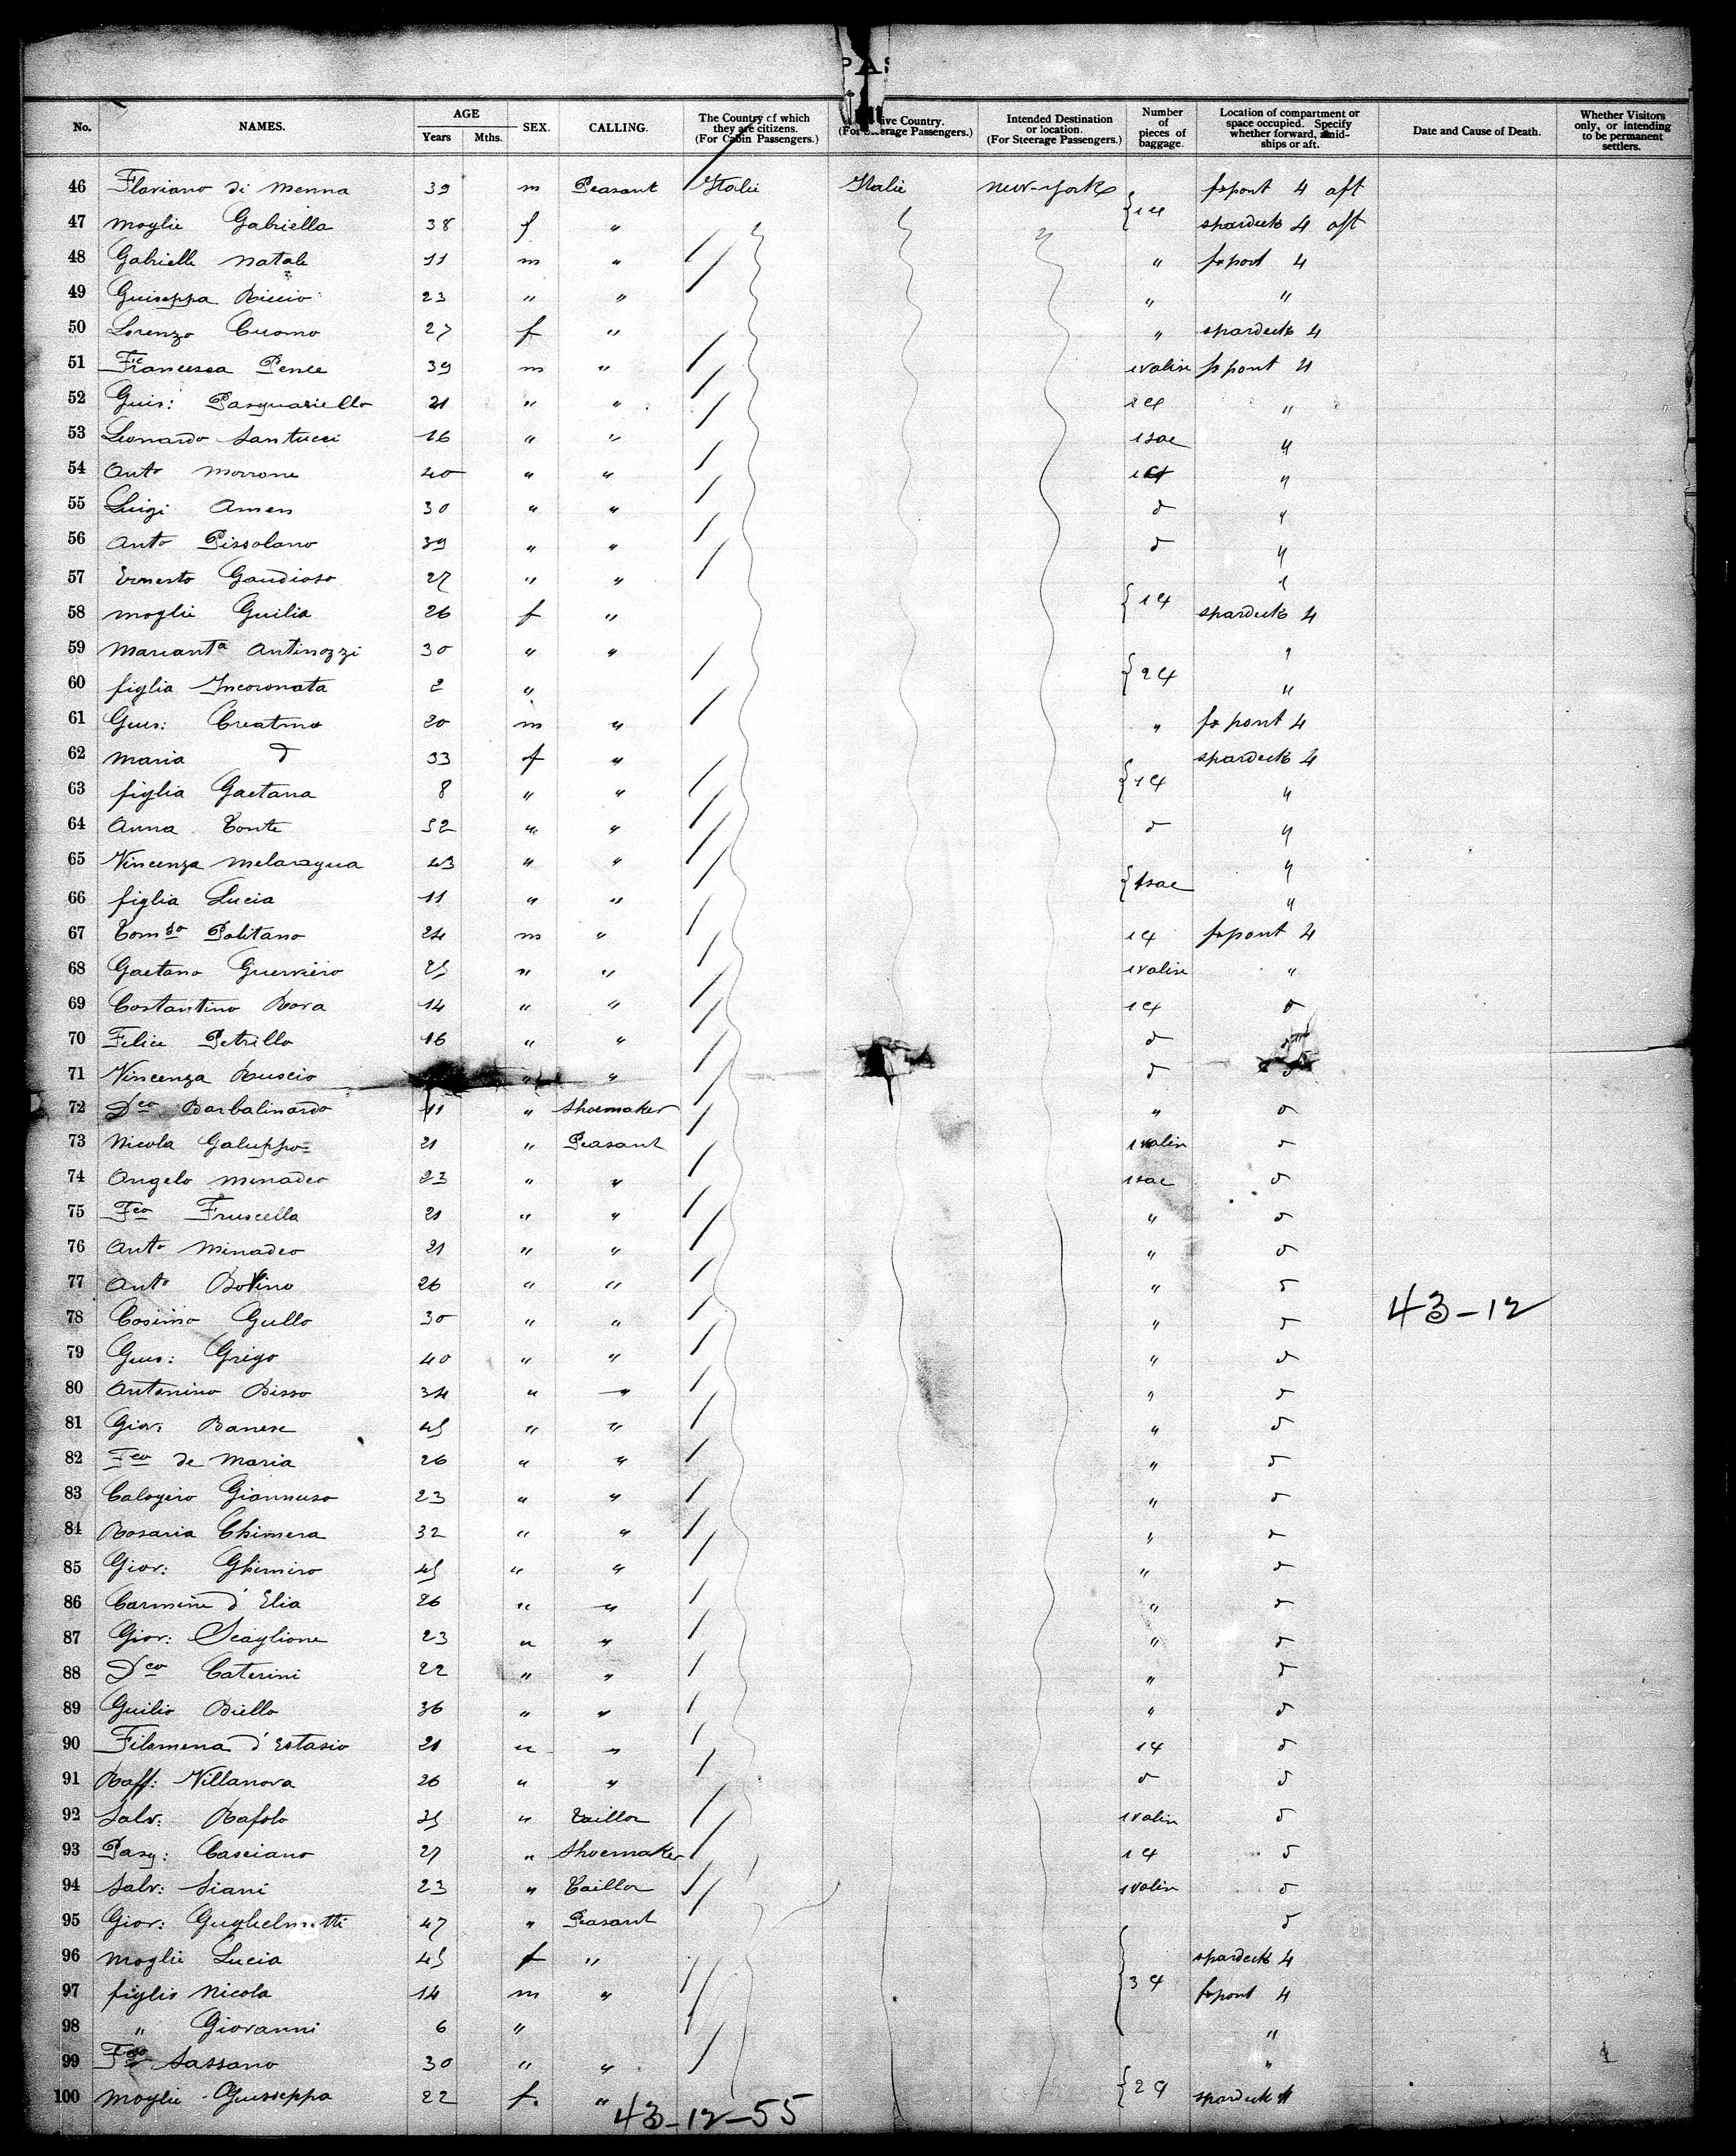 PAS
No. NAMES. AGE Years Mths. SEX. CALLING. The Country of which they are citizens. (For Cabin Passengers.) ive Country. (For Steerage Passengers.) Intended Destination or location. (For Steerage Passengers.) Number of pieces of baggage. Location of compartment or space occupied. Specify whether forward, amidships or aft. Date and Cause of Death. Whether Visitors only, or intending to be permanent settlers.
46 Flaviano di Menna 39 m Peasant Italie Italie New-York frpont 4 aft
47 moglie Gabriella 38 f " spardeck 4 aft
48 Gabrielle Natale 11 m " " frpont 4
49 Guiseppa Riccio 23 " " " "
50 Lorenzo Cuomo 27 f " " spardeck 4
51 Francesca Pence 39 m " 1 valise frpont 4
52 Guis: Pasquariello 21 " " "
53 Leonardo Santucci 16 " " 1 sac "
54 Anto Morrone 40 " " "
55 Luigi Amen 30 " " "
56 Anto Pissolano 39 " " "
57 Ernesto Gaudioso 27 " "
58 moglie Guilia 26 f " spardeck 4
59 Mariant^a Antinozzi 30 " " "
60 figlia Incoronata 2 " "
61 Gius: Creatmo 20 m " " fr pont 4
62 Maria d 33 f " spardeck 4
63 figlia Gaetana 8 " " "
64 Anna Conte 52 " " d "
65 Vincenza Melaragua 43 " " 1 sac "
66 figlia Lucia 11 " " "
67 Tom^so Politano 24 m " frpont 4
68 Gaetano Guerriero 25 " " 1 valise "
69 Costantino Rora 14 " " d
70 Felice Petrillo 16 " " d
71 Vincenza Ruscio " " d
72 D^co Barbalinardo 11 " Shoemaker " d
73 Nicola Galuppo 21 " Peasant 1 valise d
74 Angelo Minadeo 23 " " 1 sac d
75 F^co Fruscella 21 " " " d
76 Anto Minadeo 21 " " " d
77 Anto Bovino 26 " " " d
78 Cosimo Gullo 30 " " " d 43-12
79 Gius: Grigo 40 " " " d
80 Antonino Risso 34 " " " d
81 Giov: Banese 45 " " " d
82 F^co de Maria 26 " " " d
83 Calogero Giannuso 23 " " " d
84 Rosaria Chimera 32 " " " d
85 Giov: Ghimiro 45 " " " d
86 Carmine d'Elia 26 " " " d
87 Giov: Scaglione 23 " " " d
88 D^co Caterini 22 " " " d
89 Guilio Biello 36 " " " d
90 Filomena d'Estasio 21 " " d
91 Raff: Villanova 26 " " d d
92 Salv: Rafolo 35 " Taillor 1 valise d
93 Pasq: Casciano 27 " Shoemaker d
94 Salv: Siani 23 " Taillor 1 valise d
95 Giov: Guglielmotti 47 " Peasant d
96 moglie Lucia 45 f " spardeck 4
97 figlio Nicola 14 m " frpont 4
98 " Giovanni 6 " "
99 F^co Sassano 30 " " "
100 moglie Guisseppa 22 f. " spardeck 4
43-12-55